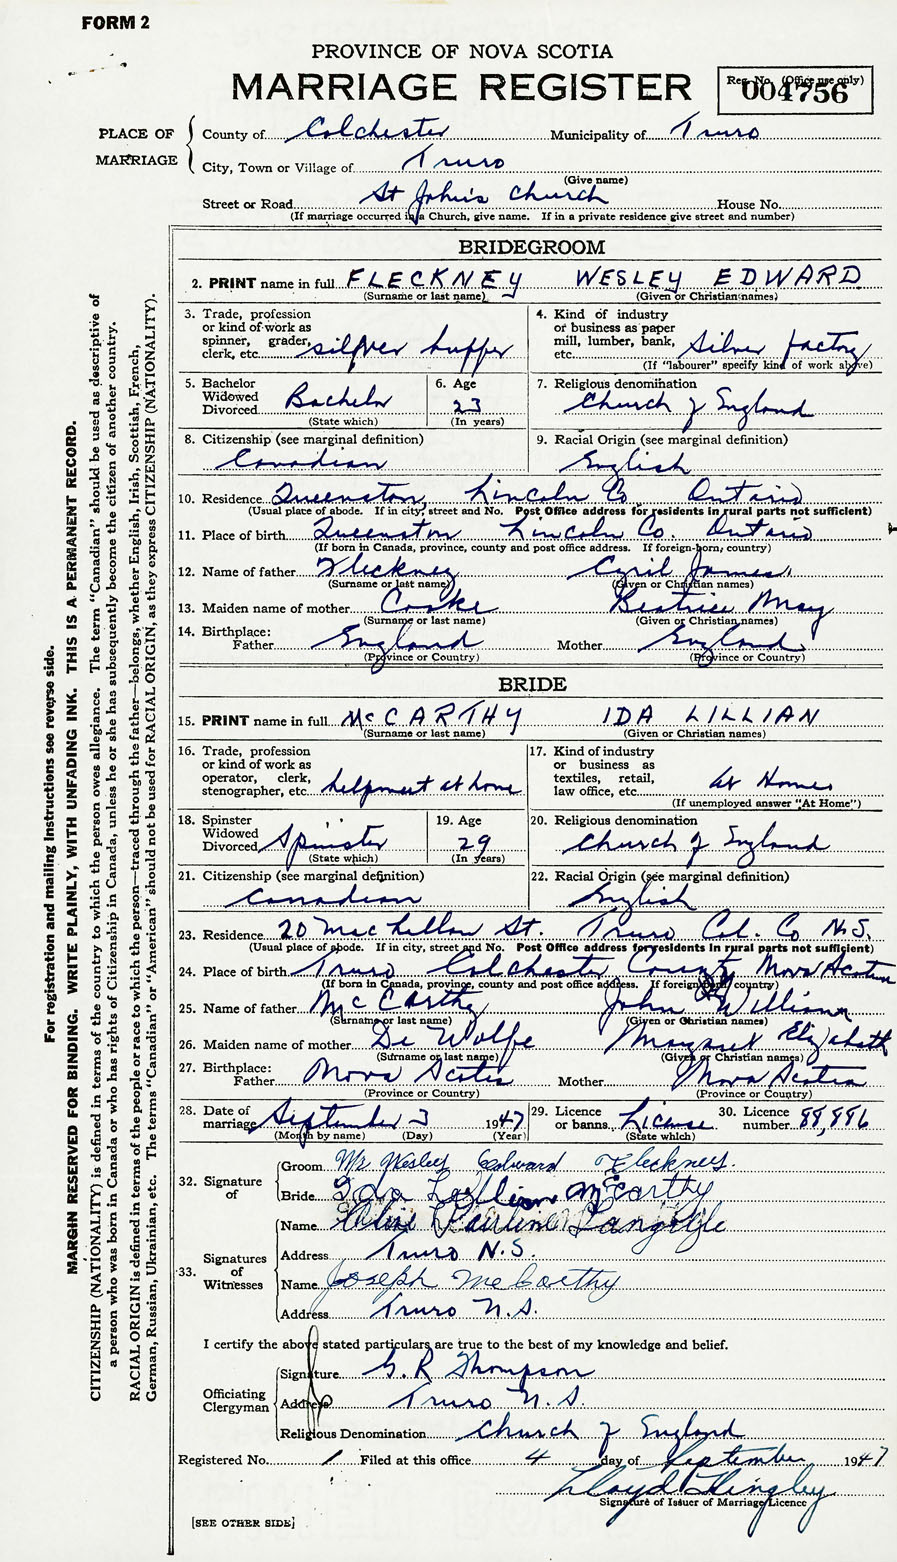 FORM 2
PROVINCE OF NOVA SCOTIA
MARRIAGE REGISTER
Reg. No. (Office use only)
004756
PLACE OF MARRIAGE
County of Colchester Municipality of Truro
City, Town or Village of Truro
(Give name)
Street or Road St John's Church House No.
(If marriage occurred in a Church, give name. If in a private residence give street and number)
BRIDEGROOM
2. PRINT name in full FLECKNEY WESLEY EDWARD
(Surname or last name) (Given or Christian names)
3. Trade, profession or kind of work as spinner, grader, clerk, etc. silver buffer
4. Kind of industry or business as paper mill, lumber, bank, etc. Silver factory
(If "labourer" specify kind of work above)
5. Bachelor Widowed Divorced Bachelor
(State which)
6. Age 23
(In years)
7. Religious denomination Church of England
8. Citizenship (see marginal definition) Canadian
9. Racial Origin (see marginal definition) English
10. Residence Queenston, Lincoln Co Ontario
(Usual place of abode. If in city, street and No. Post Office address for residents in rural parts not sufficient)
11. Place of birth Queenston Lincoln Co. Ontario
(If born in Canada, province, county and post office address. If foreign-born, country)
12. Name of father Fleckney Cyril James
(Surname or last name) (Given or Christian names)
13. Maiden name of mother Cooke Beatrice May
(Surname or last name) (Given or Christian names)
14. Birthplace: Father England Mother England
(Province or Country) (Province or Country)
BRIDE
15. PRINT name in full McCARTHY IDA LILLIAN
(Surname or last name) (Given or Christian names)
16. Trade, profession or kind of work as operator, clerk, stenographer, etc. helpment at home
17. Kind of industry or business as textiles, retail, law office, etc. At Home
(If unemployed answer "At Home")
18. Spinster Widowed Divorced Spinster
(State which)
19. Age 29
(In years)
20. Religious denomination Church of England
21. Citizenship (see marginal definition) Canadian
22. Racial Origin (see marginal definition) English
23. Residence 20 MacLellan St. Truro Col. Co N.S.
(Usual place of abode. If in city, street and No. Post Office address for residents in rural parts not sufficient)
24. Place of birth Truro Colchester County Nova Scotia
(If born in Canada, province, county and post office address. If foreign-born, country)
25. Name of father McCarthy John William
(Surname or last name) (Given or Christian names)
26. Maiden name of mother De Wolfe Margaret Elizabeth
(Surname or last name) (Given or Christian names)
27. Birthplace: Father Nova Scotia Mother Nova Scotia
(Province or Country) (Province or Country)
28. Date of marriage September 3 1947
(Month by name) (Day) (Year)
29. Licence or banns License
(State which)
30. Licence number 88,886
32. Signature of
Groom Mr Wesley Edward Fleckney.
Bride Ida Lillian McCarthy
33. Signatures of Witnesses
Name
Address Truro N.S.
Name Joseph McCarthy
Address Truro N.S.
I certify the above stated particulars are true to the best of my knowledge and belief.
Officiating Clergyman
Signature G. R Thompson
Address Truro N.S.
Religious Denomination Church of England
Registered No. 1 Filed at this office 4 day of September 1947
Lloyd Hingley
Signature of Issuer of Marriage Licence
[SEE OTHER SIDE]
For registration and mailing instructions see reverse side.
MARGIN RESERVED FOR BINDING. WRITE PLAINLY, WITH UNFADING INK. THIS IS A PERMANENT RECORD.
CITIZENSHIP (NATIONALITY) is defined in terms of the country to which the person owes allegiance. The term "Canadian" should be used as descriptive of
a person who was born in Canada or who has rights of Citizenship in Canada, unless he or she has subsequently become the citizen of another country.
RACIAL ORIGIN is defined in terms of the people or race to which the person—traced through the father—belongs, whether English, Irish, Scottish, French,
German, Russian, Ukrainian, etc. The terms "Canadian" or "American" should not be used for RACIAL ORIGIN, as they express CITIZENSHIP (NATIONALITY).